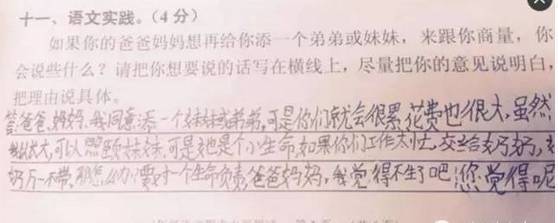 十一、语文实践。(4分)
如果你的爸爸妈妈想再给你添一个弟弟或妹妹，来跟你商量，你
会说些什么？请把你想要说的话写在横线上，尽量把你的意见说明白，
把理由说具体。
答:爸爸,妈妈,我同意添一个妹妹或弟弟,可是你们就会很累,花费也很大,虽然
我长大,可以照顾妹妹,可是她是个小生命,如果你们工作太忙,交给奶奶,
奶万一不带,那怎么办,要对一个生命负责,爸爸妈妈,我觉得不生了吧!您觉得呢